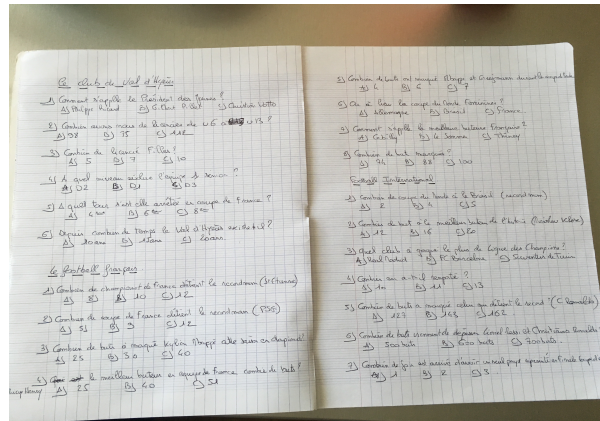 Le club de Val d'Hyères
1) Comment s'appelle le Président des jeunes ?
A) Philippe B) C)
2) Combien avons nous de licenciés de U6 à U13 ?
A) 98 B) 75 C) 112
3) Combien de licencié Filles ?
A) 5 B) 7 C) 10
4) A quel niveau évolue l'équipe 1 senior ?
A) D2 B) D1 C) D3
5) A quel tour s'est elle arrêtée en coupe de France ?
A) 4 B) 6 C) 8
6) Depuis combien de temps le Val d'Hyères existe t'il ?
A) 10 ans B) 15 ans C) 20 ans
Le football français
1) Combien de championnat de France détient le record man (St Etienne)
A) 8 B) 10 C) 12
2) Combien de coupe de France détient le record man (PSG)
A) 5 B) 9 C) 12
3) Combien de buts a marqué Kylian Mbappé cette saison en championnat ?
A) 25 B) 30 C) 40
4) le meilleur buteur en equipe de France combien de buts ?
Thierry Henry A) 25 B) 40 C) 51
5) Combien de buts ont marqué Mbappé et Griezmann durant la coupe
A) 4 B) 6 C) 7
6) Où a lieu la coupe du monde féminines ?
A) Allemagne B) Brésil C) France
7) Comment s'appelle la meilleur buteuse Française ?
A) B) Le Sommer C) Thiney
8) Combien de but marqués ?
A) 74 B) 88 C) 100
Football International
1) Combien de coupe du monde à le Brésil (record man)
A) 2 B) 4 C) 5
2) Combien de but à le meilleur buteur de l'histoire (Miroslav Klose)
A) 12 B) 16 C) 20
3) Quel club a gagné le plus de ligue des Champions ?
A) Real Madrid B) FC Barcelone C) Juventus de Turin
4) Combien en a t-il remporté ?
A) 10 B) 11 C) 13
5) Combien de buts a marqué celui qui détient le record (C Ronaldo)
A) 127 B) 143 C) 162
6) Combien de buts viennent de dépasser Lionel Messi et Cristiano Ronaldo
A) 500 buts B) 600 buts C) 700 buts
7) Combien de fois est arrivé d'avoir un seul pays
A) 1 B) 2 C) 3